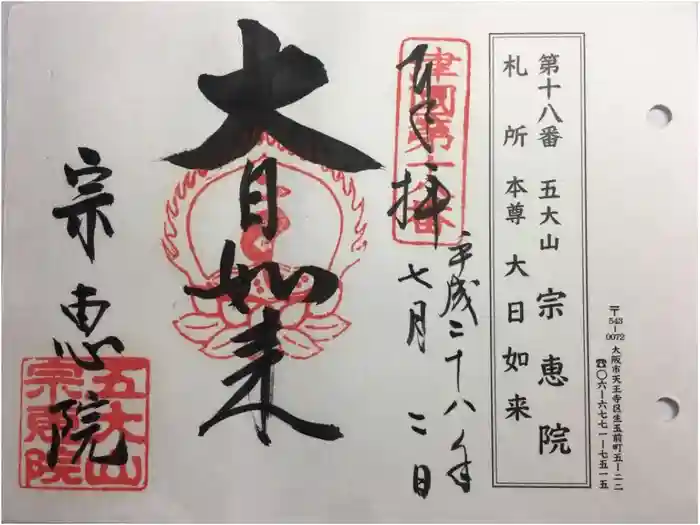 第十八番 五大山 宗恵院
札所 本尊 大日如来
〒543-0072 大阪市天王寺区生玉前町五-二二
☎〇六-六七七一-七五一五
奉拝
平成二十八年
七月二日
津国第十八番
大日如来
宗恵院
五大山
宗恵院